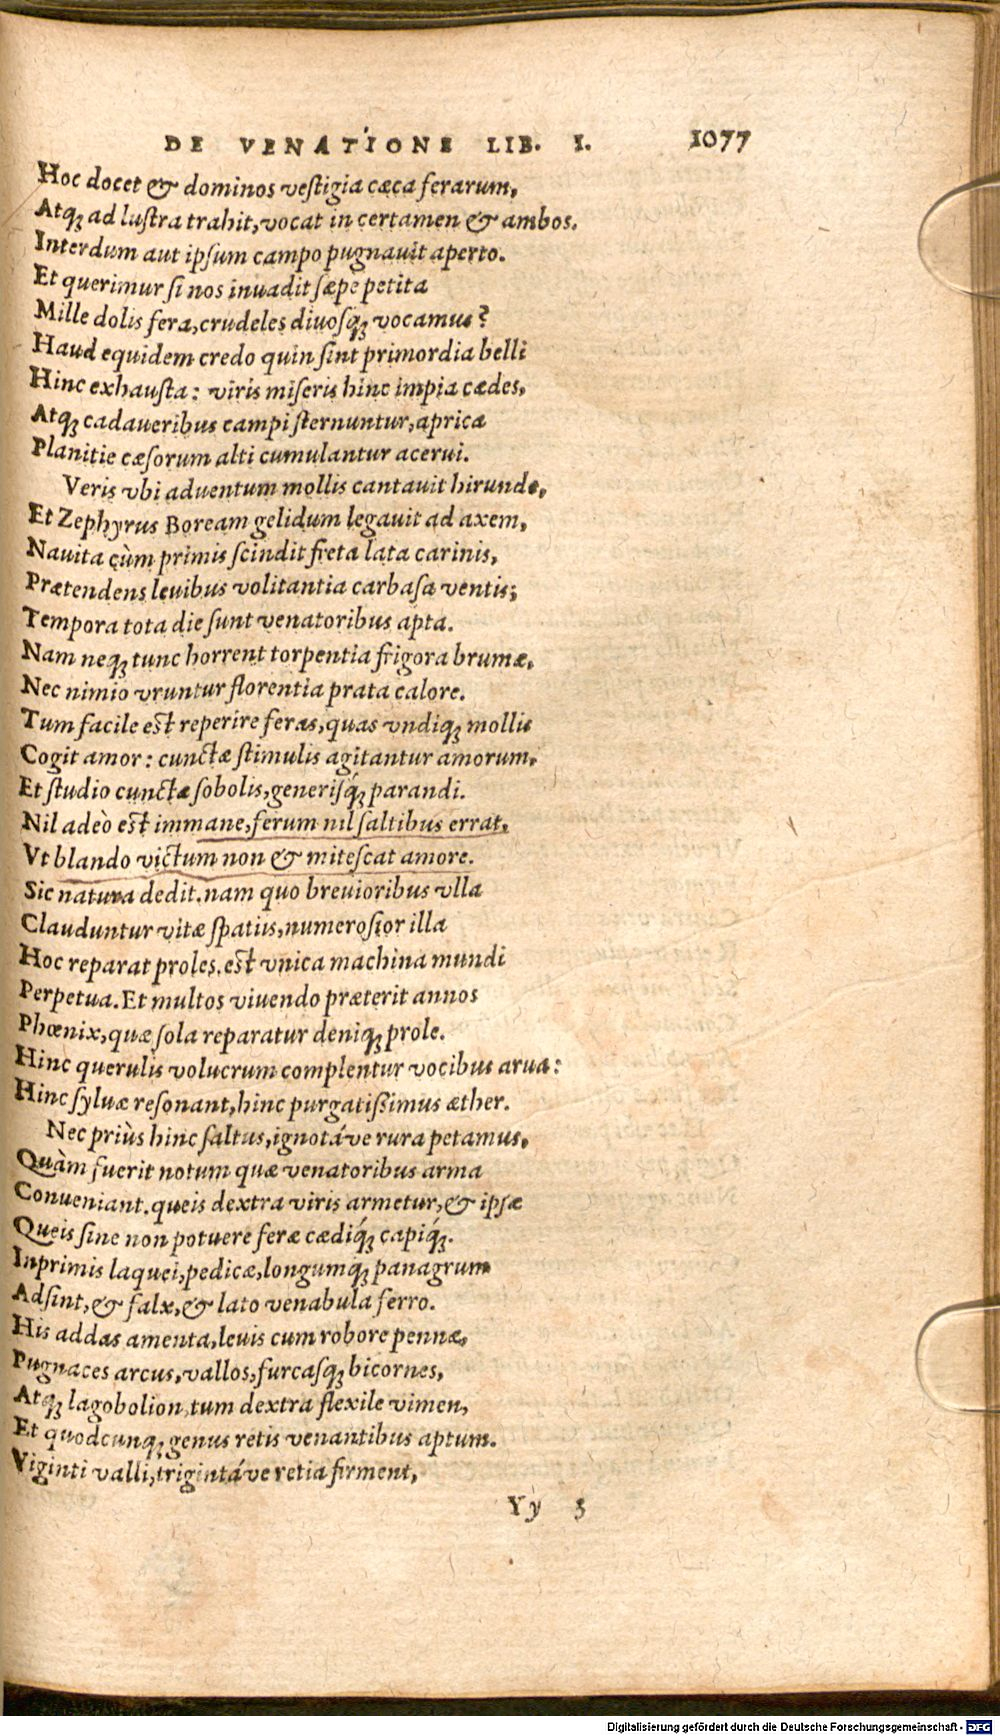 DE VENATIONE LIB. I. 1077
Hoc docet & dominos veſtigia cæca ferarum,
Atq; ad luſtra trahit, vocat in certamen & ambos.
Interdum aut ipſum campo pugnauit aperto.
Et querimur ſi nos inuadit ſæpe petita
Mille dolis fera, crudeles diuoſq; vocamus?
Haud equidem credo quin ſint primordia belli
Hinc exhauſta: viris miſeris hinc impia cædes,
Atq; cadaueribus campi ſternuntur, apricæ
Planitie cæſorum alti cumulantur acerui.
Veris vbi aduentum mollis cantauit hirundo,
Et Zephyrus Boream gelidum legauit ad axem,
Nauita cùm primis ſcindit freta lata carinis,
Prætendens leuibus volitantia carbaſa ventis;
Tempora tota die ſunt venatoribus apta.
Nam neq; tunc horrent torpentia frigora brumæ,
Nec nimio vruntur florentia prata calore.
Tum facile eſt reperire feras, quas vndiq; mollis
Cogit amor: cunctæ ſtimulis agitantur amorum,
Et ſtudio cunctæ ſobolis, generiſq́; parandi.
Nil adeò eſt immane, ferum nil ſaltibus errat,
Vt blando victum non & miteſcat amore.
Sic natura dedit. nam quo breuioribus vlla
Clauduntur vitæ ſpatiis, numeroſior illa
Hoc reparat proles. eſt vnica machina mundi
Perpetua. Et multos viuendo præterit annos
Phœnix, quæ ſola reparatur deniq; prole.
Hinc querulis volucrum complentur vocibus arua:
Hinc ſyluæ reſonant, hinc purgatißimus æther.
Nec priùs hinc ſaltus, ignotáve rura petamus,
Quàm fuerit notum quæ venatoribus arma
Conueniant. queis dextra viris armetur, & ipſæ
Queis ſine non potuere feræ cædiq́; capiq́;.
Inprimis laquei, pedicæ, longumq; panagrum
Adſint, & falx, & lato venabula ferro.
His addas amenta, leuis cum robore pennæ,
Pugnaces arcus, vallos, furcaſq; bicornes,
Atq; lagobolion, tum dextra flexile vimen,
Et quodcunq; genus retis venantibus aptum.
Viginti valli, trigintáve retia firment,
Yy 3
Digitalisierung gefördert durch die Deutsche Forschungsgemeinschaft - DFG